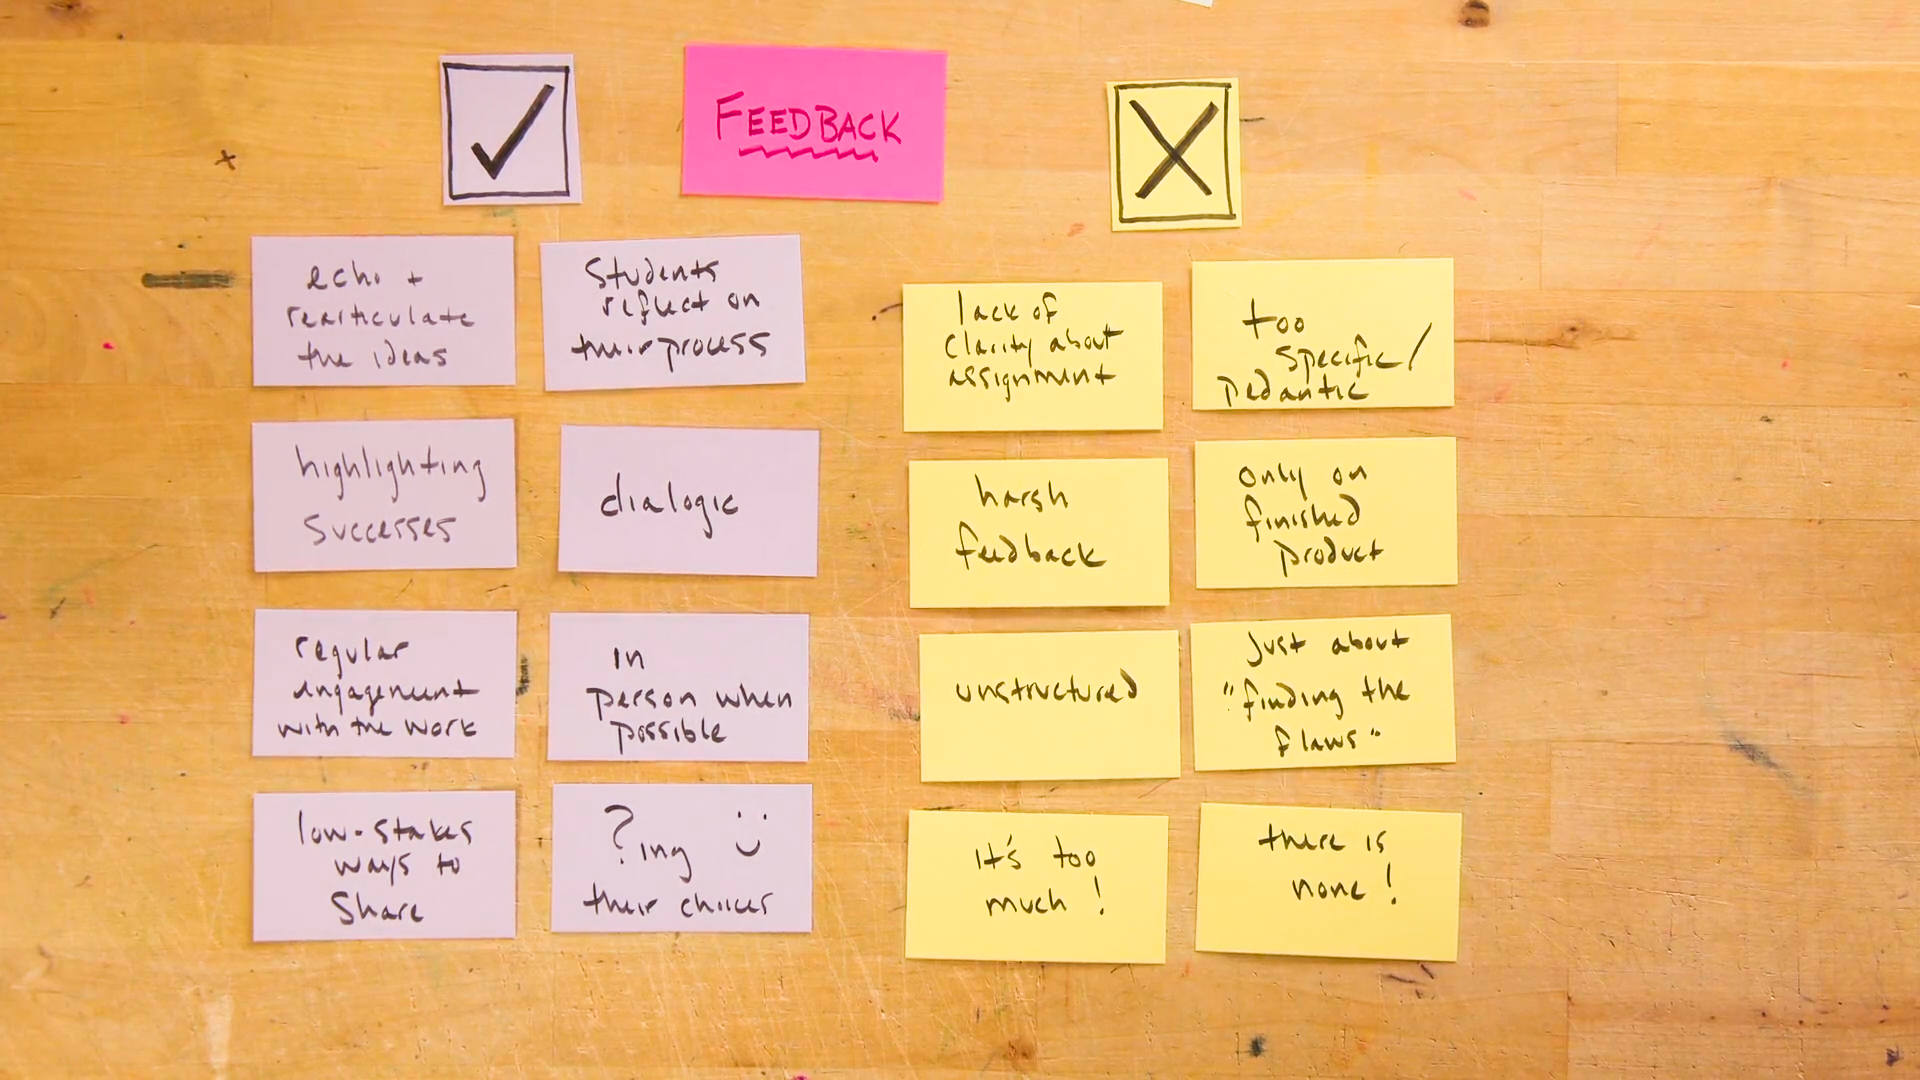 FEEDBACK
echo +
rearticulate
the ideas
Students
reflect on
their process
highlighting
successes
dialogic
regular
engagement
with the work
in
person when
possible
low-stakes
ways to
share
?ing
their choices
lack of
clarity about
assignment
too
specific/
pedantic
harsh
feedback
only on
finished
product
unstructured
Just about
"finding the
flaws"
it's too
much!
there is
none!